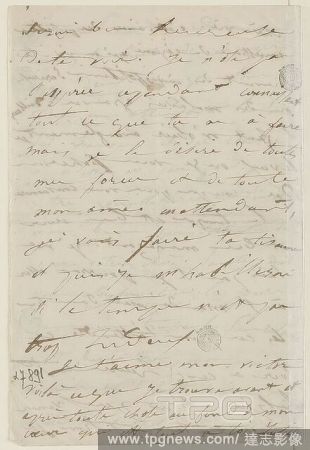 serai bien heureuse
de te voir. Je n'ose pas
l'espérer cependant connaissant
tout ce que tu as à faire
mais je le désire de toutes
mes forces et de toute
mon âme. En attendant,
je vais faire ta tisane
et puis je m'habillerai
si le temps n'est pas
trop
Je t'aime mon Victor
voilà ce que je trouve avant et
après toute chose au fond de mon
cœur
TPG
www.tpgnews.com/達志影像